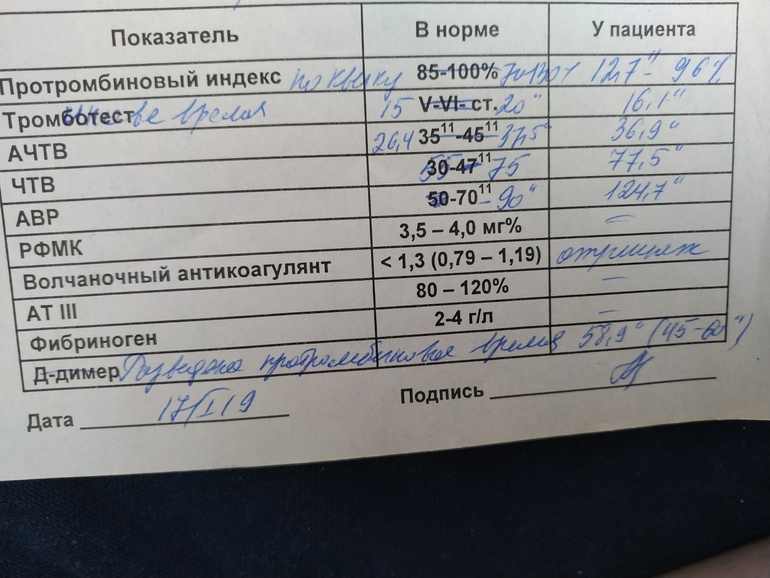 Показатель В норме У пациента
Протромбиновый индекс по Квику 85-100% 70-130% 12,7" - 96%
Тромботест время 15 V-VI- ст. 20" 16,1"
АЧТВ 26,4 35"-45" 37,5" 36,9"
ЧТВ 55 30-47" 75 77,5"
АВР 50-70" - 90" 124,7"
РФМК 3,5 – 4,0 мг% –
Волчаночный антикоагулянт < 1,3 (0,79 – 1,19) отрицат
АТ III 80 – 120% –
Фибриноген 2-4 г/л –
Д-димер Разведено протромбиновое время 58,9" (45-60")
Дата 17/I 19 Подпись